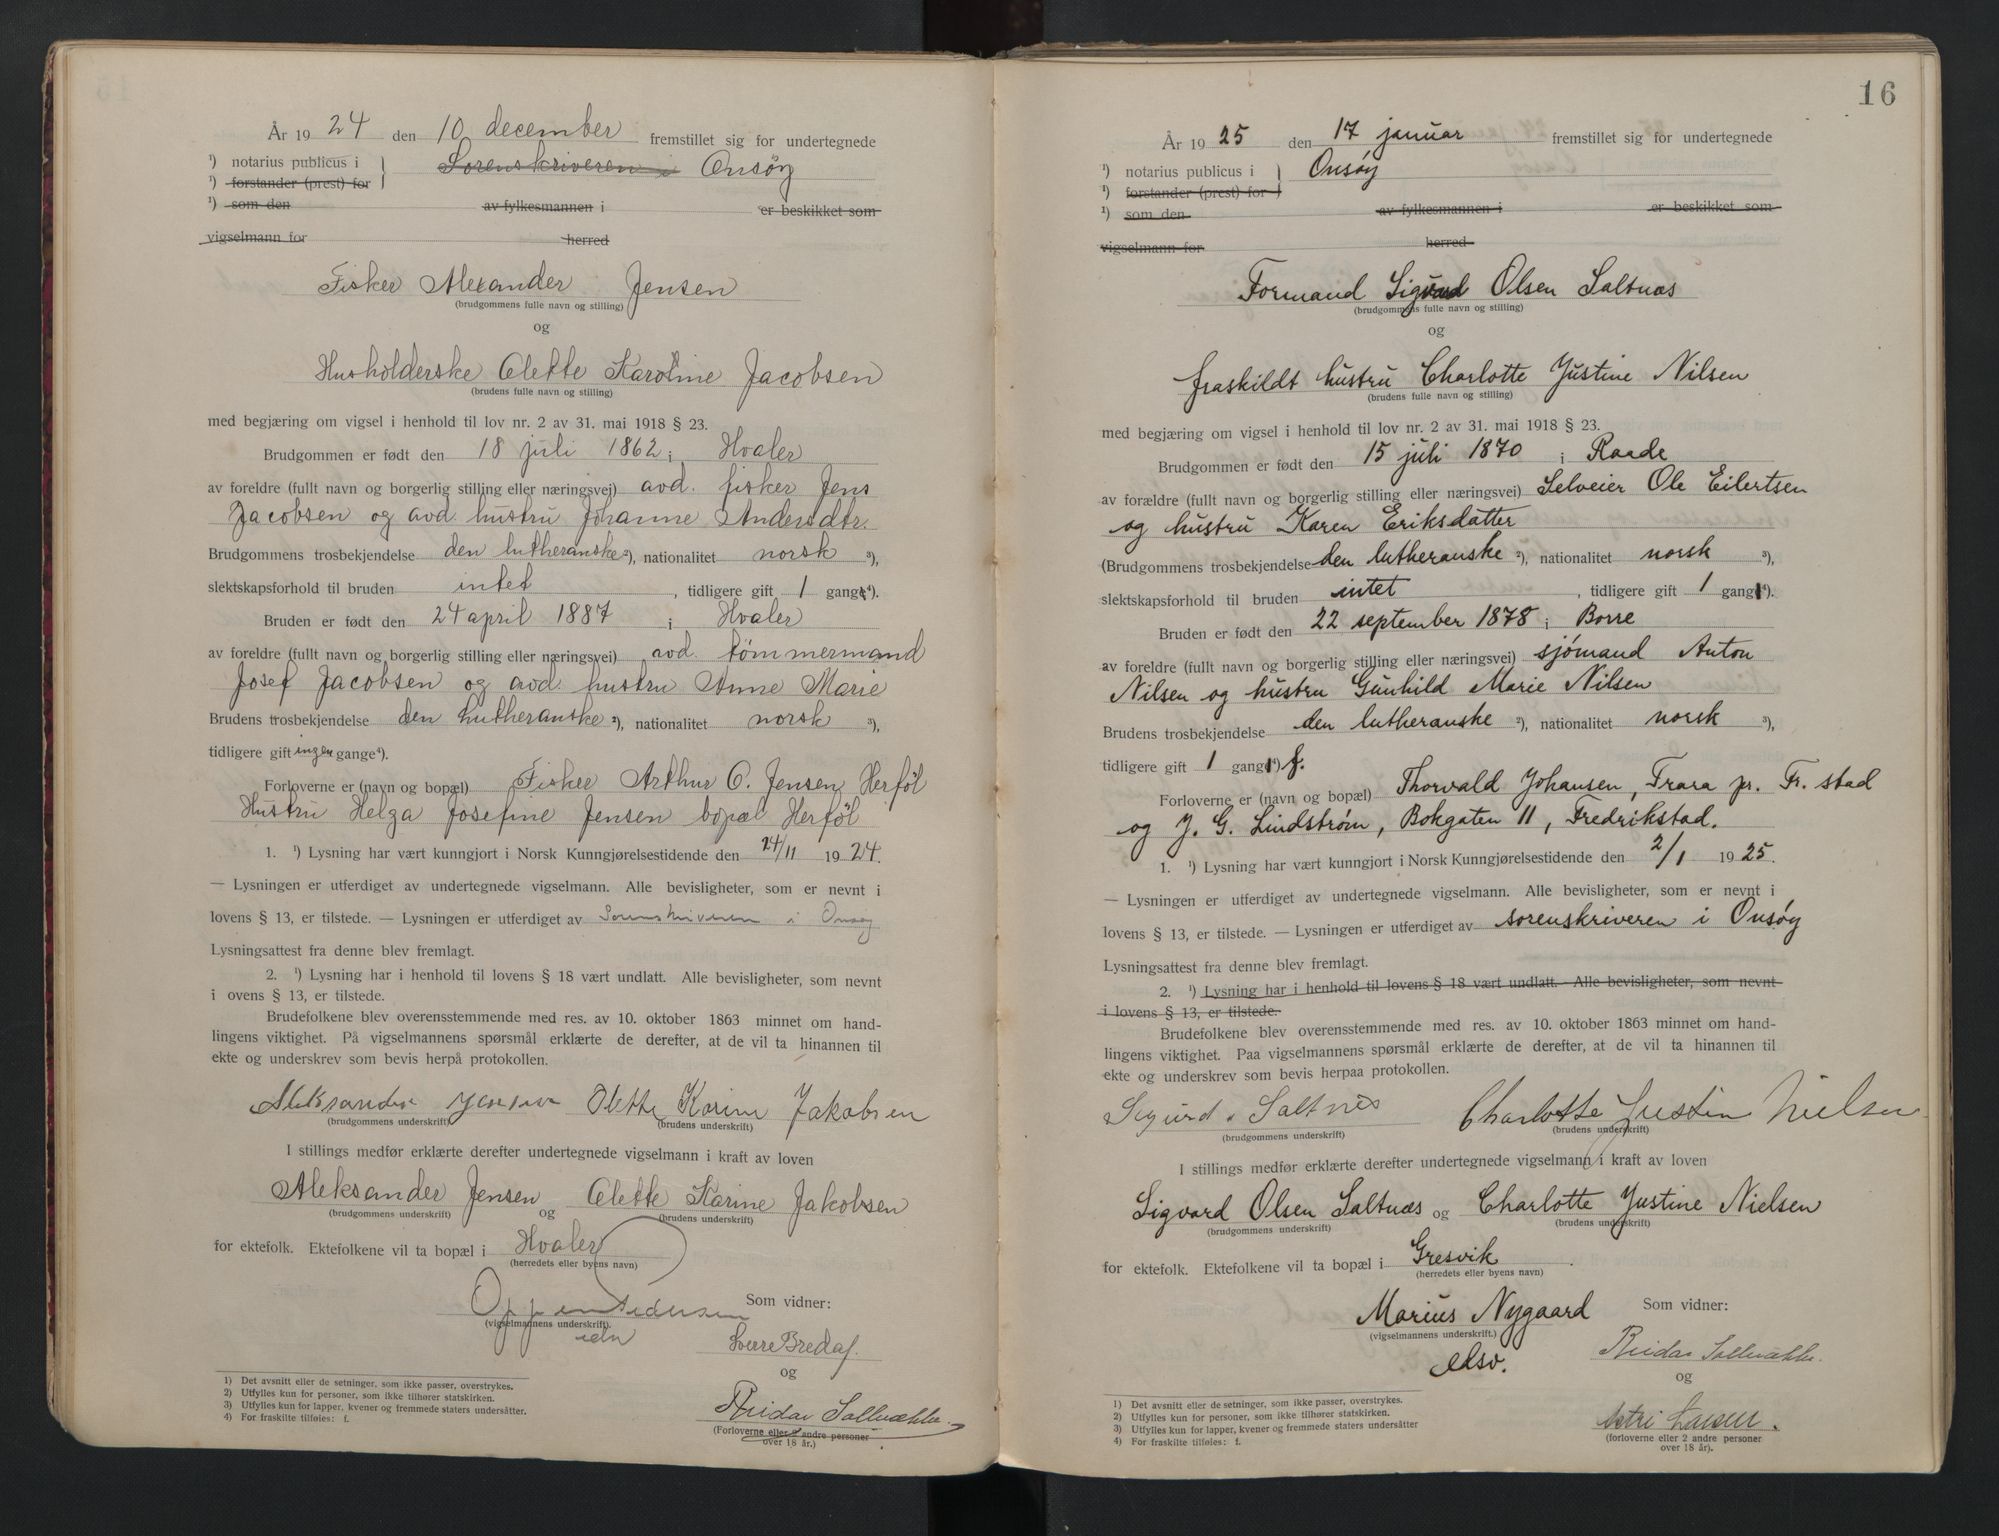 År 1924 den 10 december fremstillet sig for undertegnede
¹) notarius publicus i } Sorenskriveren i Onsøy
¹) forstander (prest) for
¹) som den av fylkesmannen i er beskikket som
vigselmann for herred
Fisker Alexander Jensen
(brudgommens fulle navn og stilling)
og
Husholderske Olette Karoline Jacobsen
(brudens fulle navn og stilling)
med begjæring om vigsel i henhold til lov nr. 2 av 31. mai 1918 § 23.
Brudgommen er født den 18 juli 1862 i Hvaler
av foreldre (fullt navn og borgerlig stilling eller næringsvei) avd. fisker Jens
Jacobsen og avd. hustru Johanne Andersdtr.
Brudgommens trosbekjendelse den lutheranske ²), nationalitet norsk ³),
slektskapsforhold til bruden intet, tidligere gift 1 gang ⁴).
Bruden er født den 24 april 1887 i Hvaler
av foreldre (fullt navn og borgerlig stilling eller næringsvei) avd. tømmermand
Josef Jacobsen og avd. hustru Anne Marie
Brudens trosbekjendelse den lutheranske ²), nationalitet norsk ³),
tidligere gift ingen gange ⁴).
Forloverne er (navn og bopæl) Fisker Arthur O. Jensen Herføl
Hustru Helga Josefine Jensen bopæl Herføl
1. ¹) Lysning har vært kunngjort i Norsk Kunngjørelsestidende den 24/11 1924.
— Lysningen er utferdiget av undertegnede vigselmann. Alle bevisligheter, som er nevnt i
lovens § 13, er tilstede. — Lysningen er utferdiget av Sorenskriveren i Onsøy
Lysningsattest fra denne blev fremlagt.
2. ¹) Lysning har i henhold til lovens § 18 vært undlatt. Alle bevisligheter, som nevnt
i ovens § 13, er tilstede.
Brudefolkene blev overensstemmende med res. av 10. oktober 1863 minnet om hand-
lingens viktighet. På vigselmannens spørsmål erklærte de derefter, at de vil ta hinannen til
ekte og underskrev som bevis herpå protokollen.
Aleksander Jensen Olette Karine Jakobsen
(brudgommens underskrift) (brudens underskrift)
I stillings medfør erklærte derefter undertegnede vigselmann i kraft av loven
Aleksander Jensen og Olette Karine Jakobsen
(brudgommens underskrift) (brudens underskrift)
for ektefolk. Ektefolkene vil ta bopæl i Hvaler
(herredets eller byens navn)
Som vidner:
(vigselmannens underskrift).
Sverre Breda
og
Reidar Sollerække
(Forloverne eller 2 andre personer
over 18 år.)
1) Det avsnitt eller de setninger, som ikke passer, overstrykes.
2) Utfylles kun for personer, som ikke tilhører statskirken.
3) Utfylles kun for lapper, kvener og fremmede staters undersåtter.
4) For fraskilte tilføies: f.
16
År 1925 den 17 januar fremstillet sig for undertegnede
¹) notarius publicus i } Onsøy
¹) forstander (prest) for
¹) som den av fylkesmannen i er beskikket som
vigselmann for herred
Formand Sigvard Olsen Saltnæs
(brudgommens fulle navn og stilling)
og
fraskildt hustru Charlotte Justine Nilsen
(brudens fulle navn og stilling)
med begjæring om vigsel i henhold til lov nr. 2 av 31. mai 1918 § 23.
Brudgommen er født den 15 juli 1870 i Raade
av forældre (fullt navn og borgerlig stilling eller næringsvei) Selveier Ole Eilertsen
og hustru Karen Eriksdatter
(Brudgommens trosbekjendelse den lutheranske ²), nationalitet norsk ³),
slektskapsforhold til bruden intet, tidligere gift 1 gang ⁴).
Bruden er født den 22 september 1878 i Borre
av foreldre (fullt navn og borgerlig stilling eller næringsvei) sjømand Anton
Nilsen og hustru Gunhild Marie Nilsen
Brudens trosbekjendelse den lutheranske ²), nationalitet norsk ³),
tidligere gift 1 gang ⁴) f.
Forloverne er (navn og bopæl) Thorvald Johansen, Trara pr. Fr. stad
og J. G. Lindstrøm, Bokgaten 11, Fredrikstad.
1. ¹) Lysning har vært kunngjort i Norsk Kunngjørelsestidende den 2/1 1925.
— Lysningen er utferdiget av undertegnede vigselmann. Alle bevisligheter, som er nevnt i
lovens § 13, er tilstede. — Lysningen er utferdiget av sorenskriveren i Onsøy
Lysningsattest fra denne blev fremlagt.
2. ¹) Lysning har i henhold til lovens § 18 vært undlatt. Alle bevisligheter, som nevnt
i lovens § 13, er tilstede.
Brudefolkene blev overensstemmende med res. av 10. oktober 1863 minnet om hand-
lingens viktighet. Paa vigselmannens spørsmål erklærte de derefter, at de vil ta hinannen til
ekte og underskrev som bevis herpaa protokollen.
Sigurd Saltnes Charlotte Justin Nielsen
(brudgommens underskrift) (brudens underskrift)
I stillings medfør erklærte derefter undertegnede vigselmann i kraft av loven
Sigvard Olsen Saltnæs og Charlotte Justine Nielsen
(brudgommens underskrift) (brudens underskrift)
for ektefolk. Ektefolkene vil ta bopæl i Gresvik.
(herredets eller byens navn)
Marius Nygaard Som vidner:
(vigselmannens underskrift.)
edsv. Reidar Sollerække.
og
Astri Larsen.
(forloverne eller 2 andre personer
over 18 år).
1) Det avsnitt eller de setninger, som ikke passer, overstrykes.
2) Utfylles kun for personer, som ikke tilhører statskirken.
3) Utfylles kun for lapper, kvener og fremmede staters undersåtter
4) For fraskilte tilføies: f.